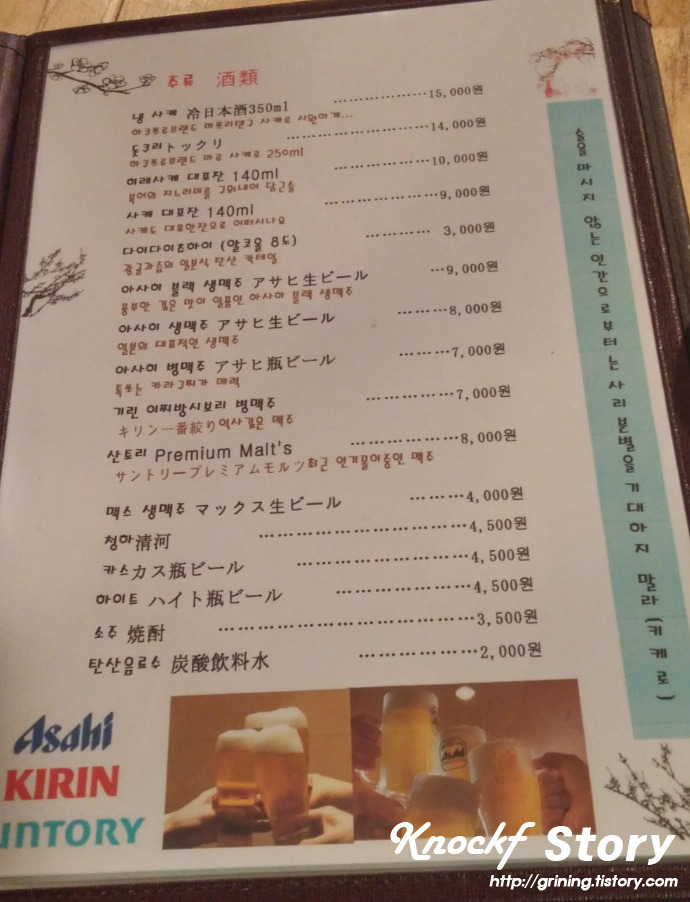 주류 酒類
냉 사케 冷日本酒350ml ………………15,000원
아크프로브랜드 마프리탠구 사케로 시원하게...
돗크리トックリ ………………………14,000원
아크프로브랜드 마루 사케로 250ml
히레사케 대포잔 140ml ………………10,000원
복어의 지느러미를 구워내어 담근술
사케 대포잔 140ml ………………9,000원
사케도 대포한잔으로 어떠시나요
다이다이츄하이 (알코올 8도) ………… 3,000원
감귤과즙의 일본식 탄산 칵테일
아사히 블랙 생맥주 アサヒ生ビール …9,000원
풍부한 깊은 맛이 일품인 아사히 블랙 생맥주
아사히 생맥주 アサヒ生ビール ………8,000원
일본의 대표적인 생맥주
아사히 병맥주 アサヒ瓶ビール ………7,000원
톡쏘는 카라구찌가 매력
기린 이찌방시보리 병맥주 ……………7,000원
キリン一番絞り역사깊은 맥주
산토리 Premium Malt's ………………8,000원
サントリープレミアムモルツ최근 인기몰이중인 맥주
맥스 생맥주 マックス生ビール ………4,000원
청하清河 ………………………………4,500원
카스カス瓶ビール ………………………4,500원
하이트 ハイト瓶ビール …………………4,500원
소주 焼酎 ……………………………………3,500원
탄산음료수 炭酸飲料水 ………………2,000원
술을 마시지 않는 인간으로부터는 사리분별을 기대하지 말라 (키케로)
Asahi
KIRIN
UNTORY
Asahi
Knockf Story
http://grining.tistory.com